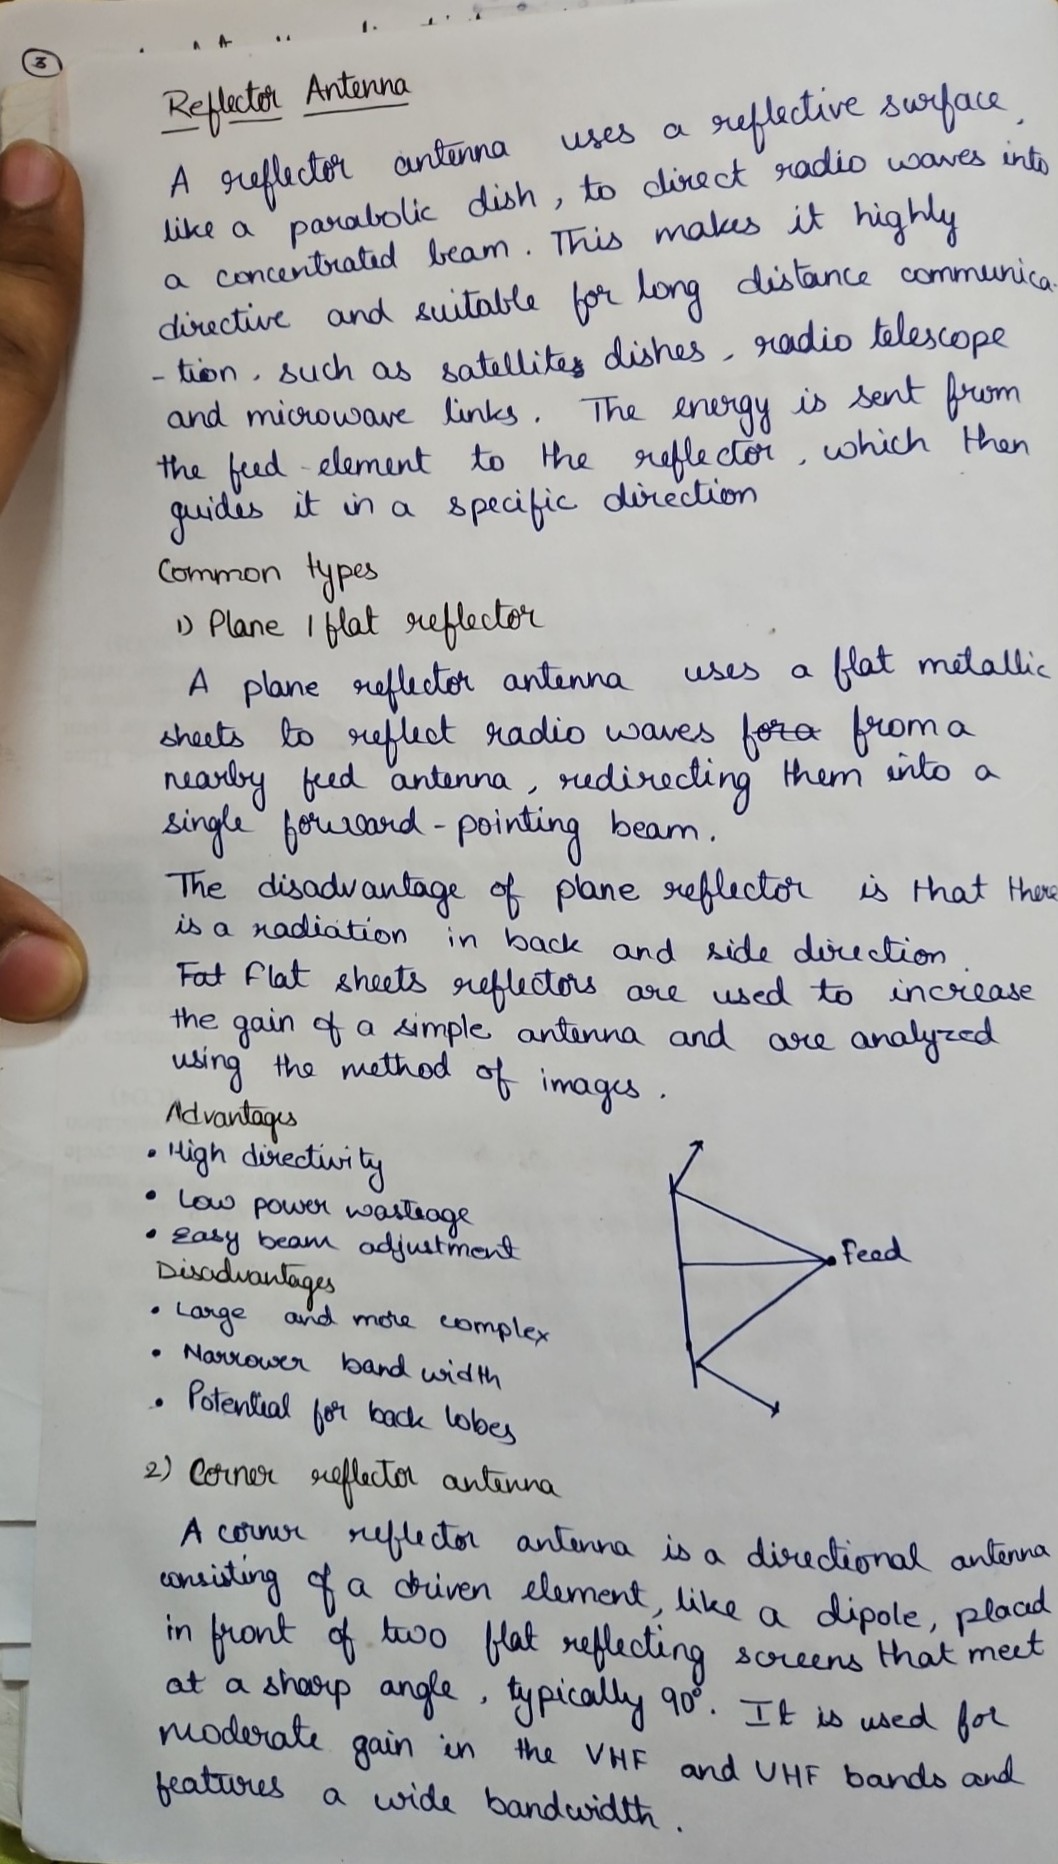 3
Reflector Antenna
A reflector antenna uses a reflective surface,
like a parabolic dish, to direct radio waves into
a concentrated beam. This makes it highly
directive and suitable for long distance communica-
-tion, such as satellites dishes, radio telescope
and microwave links. The energy is sent from
the feed-element to the reflector, which then
guides it in a specific direction
Common types
1) Plane / flat reflector
A plane reflector antenna uses a flat metallic
sheets to reflect radio waves fora from a
nearby feed antenna, redirecting them into a
single forward-pointing beam.
The disadvantage of plane reflector is that there
is a radiation in back and side direction.
Fat Flat sheets reflectors are used to increase
the gain of a simple antenna and are analyzed
using the method of images.
Advantages
• High directivity
• Low power wasteage
• Easy beam adjustment
Disadvantages
• Large and more complex
• Narrower band width
• Potential for back lobes
Feed
2) Corner reflector antenna
A corner reflector antenna is a directional antenna
consisting of a driven element, like a dipole, placed
in front of two flat reflecting screens that meet
at a sharp angle, typically 90°. It is used for
moderate gain in the VHF and UHF bands and
features a wide bandwidth.